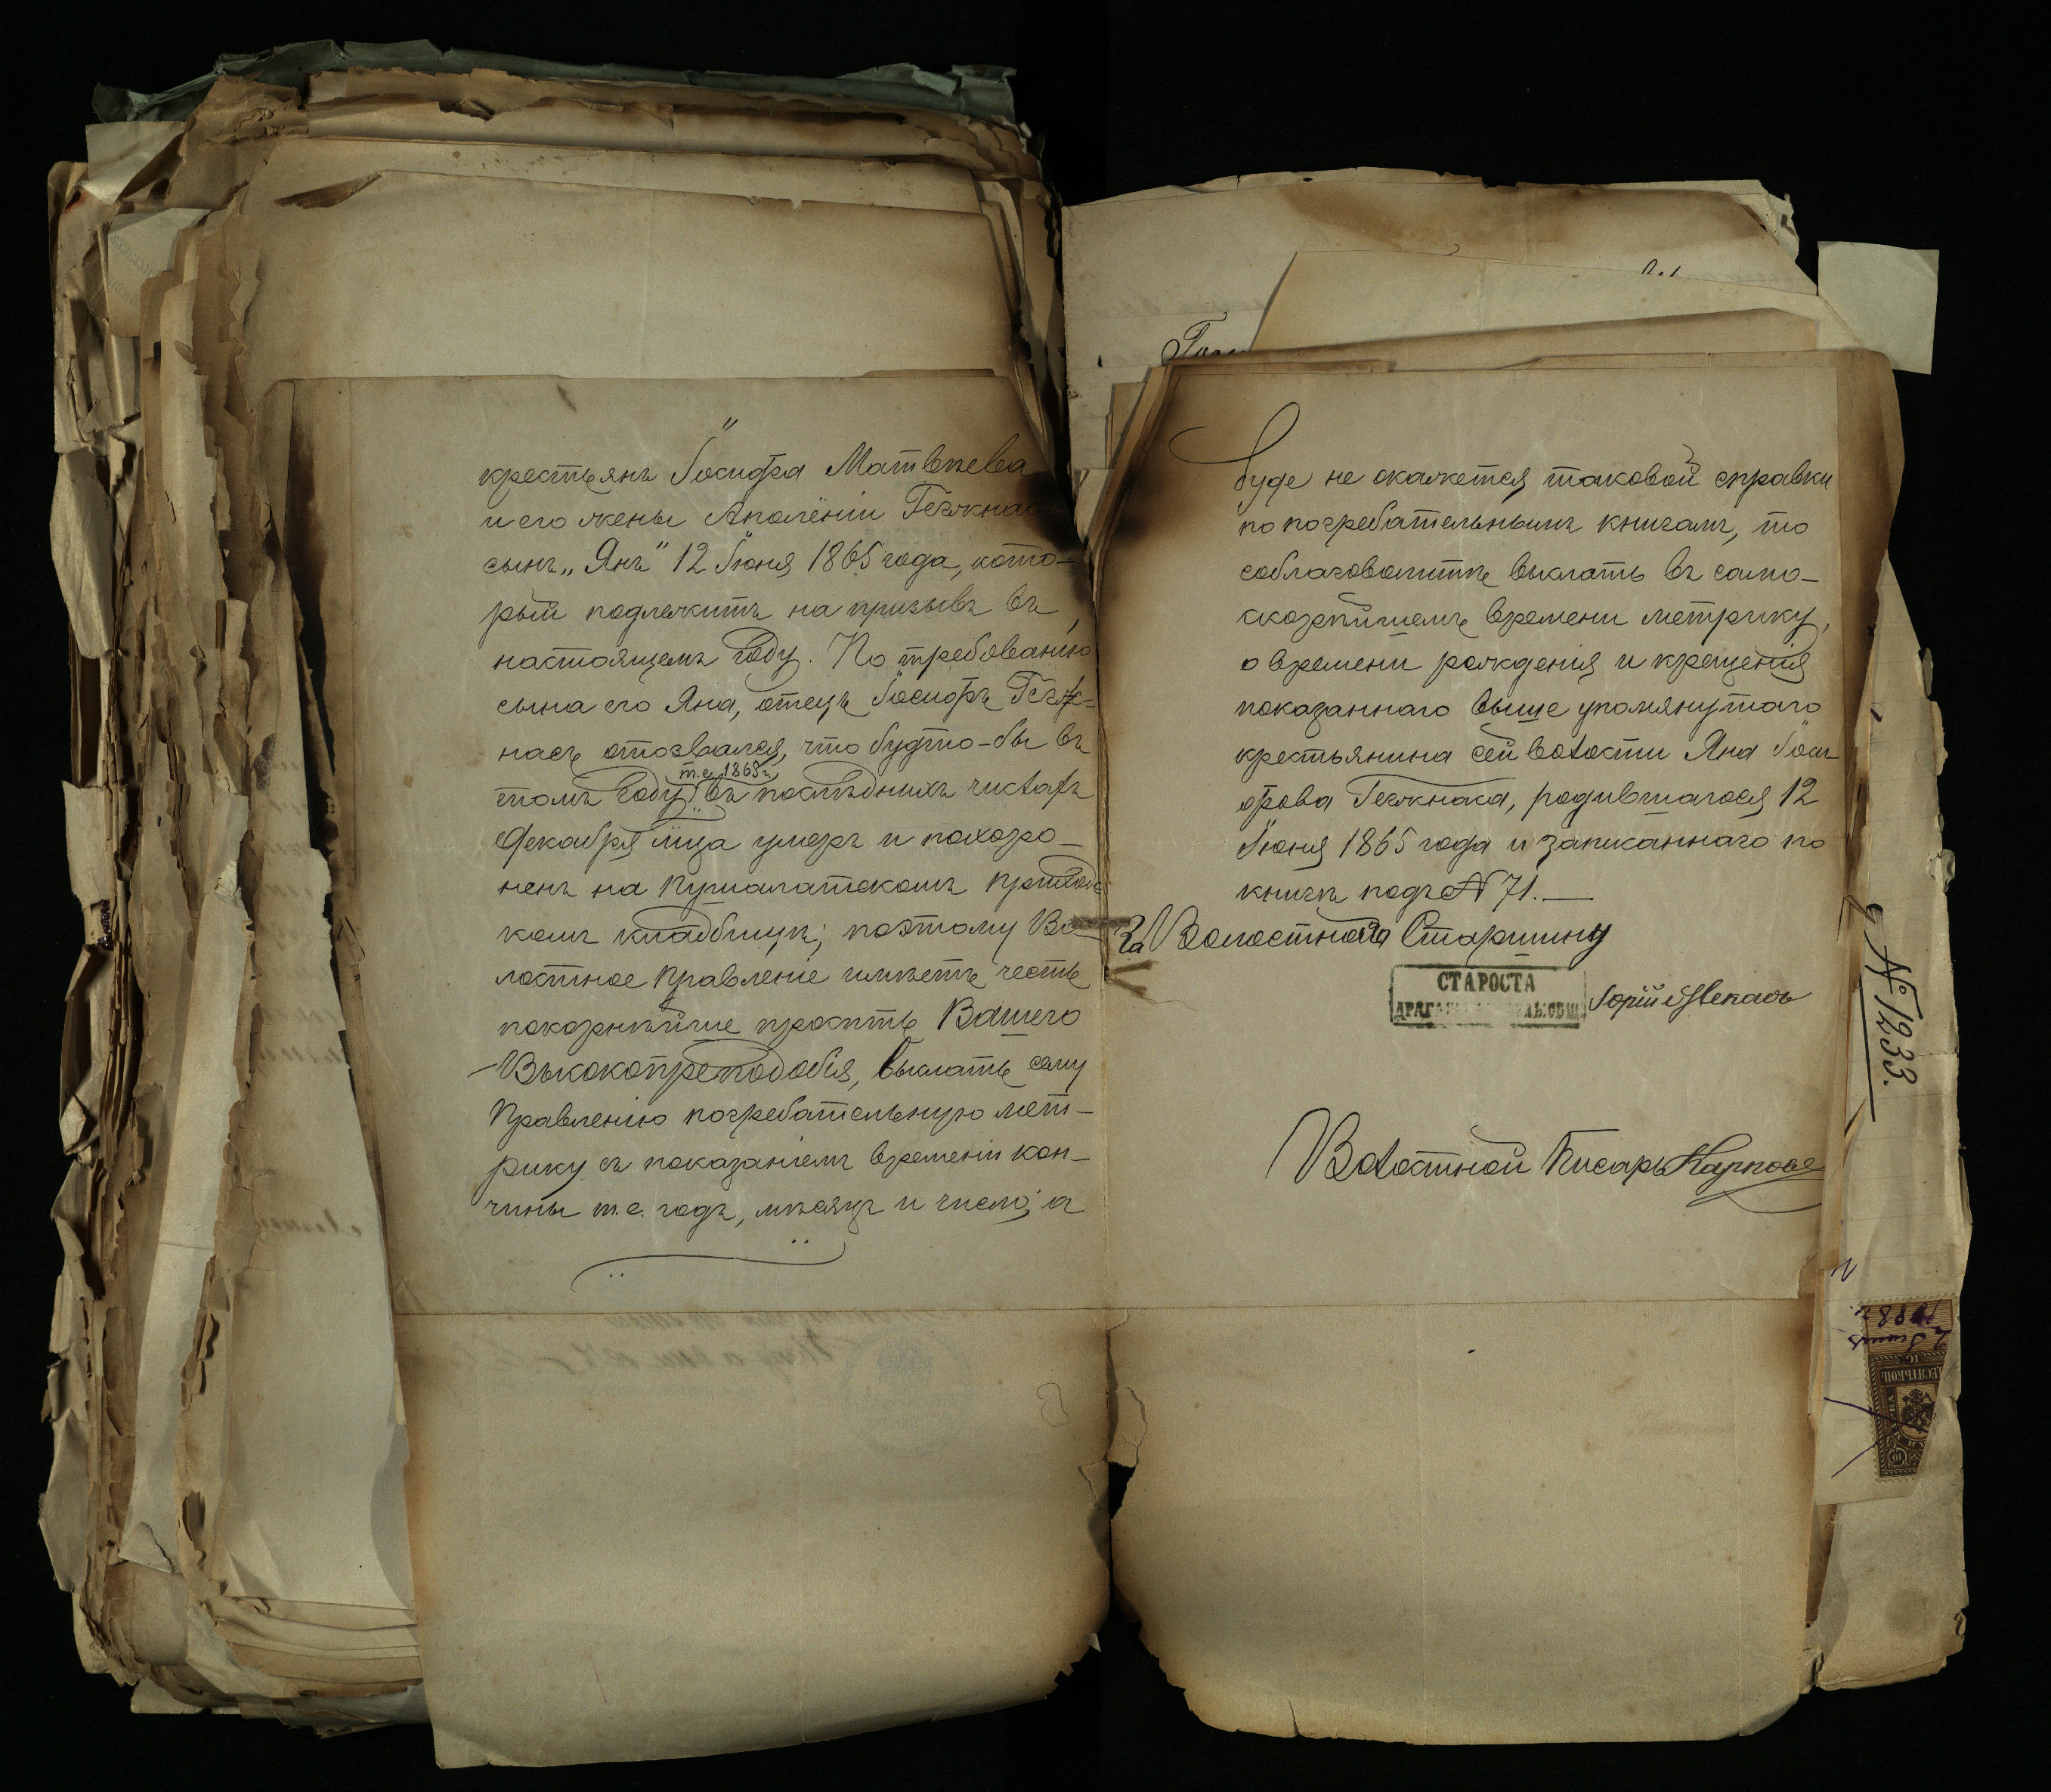 крестьянъ Іосифа Матвѣева
и его жены Аполёніи
сынъ „Янъ" 12 Іюня 1865 года, кото-
рый подлежитъ на призывъ въ
настоящемъ году. По требованію
сына его Яна, отецъ Іосифъ Гечж-
насъ отозвался, что будто-бы въ
томъ году, т. е. 1865 г. въ послѣднихъ числахъ
Декабря м̃ца умеръ и похоро-
ненъ на Пушалатскомъ приход
комъ кладбищѣ; поэтому Во-
лостное Правленіе имѣетъ честь
покорнѣйше просить Вашего
Высокопреподобія, выслать сему
Правленію погребательную мет-
рику съ показаніемъ времени кон-
чины т. е. годъ, мѣсяцъ и число; а
буде не окажется таковой справки
по погребательнымъ книгамъ, то
соблаговолите выслать въ само-
скорѣйшемъ времени метрику,
о времени рожденія и крещенія
показаннаго выше упомянутаго
крестьянина сей волости Яна Іоси
фова Гечжнаса, родившагося 12
Іюня 1865 года и записаннаго по
книгѣ подъ № 71.—
За Волостнаго Старшину
СТАРОСТА
Юрій
Волостной Писарь Карповъ
№ 1233.
1888 г.